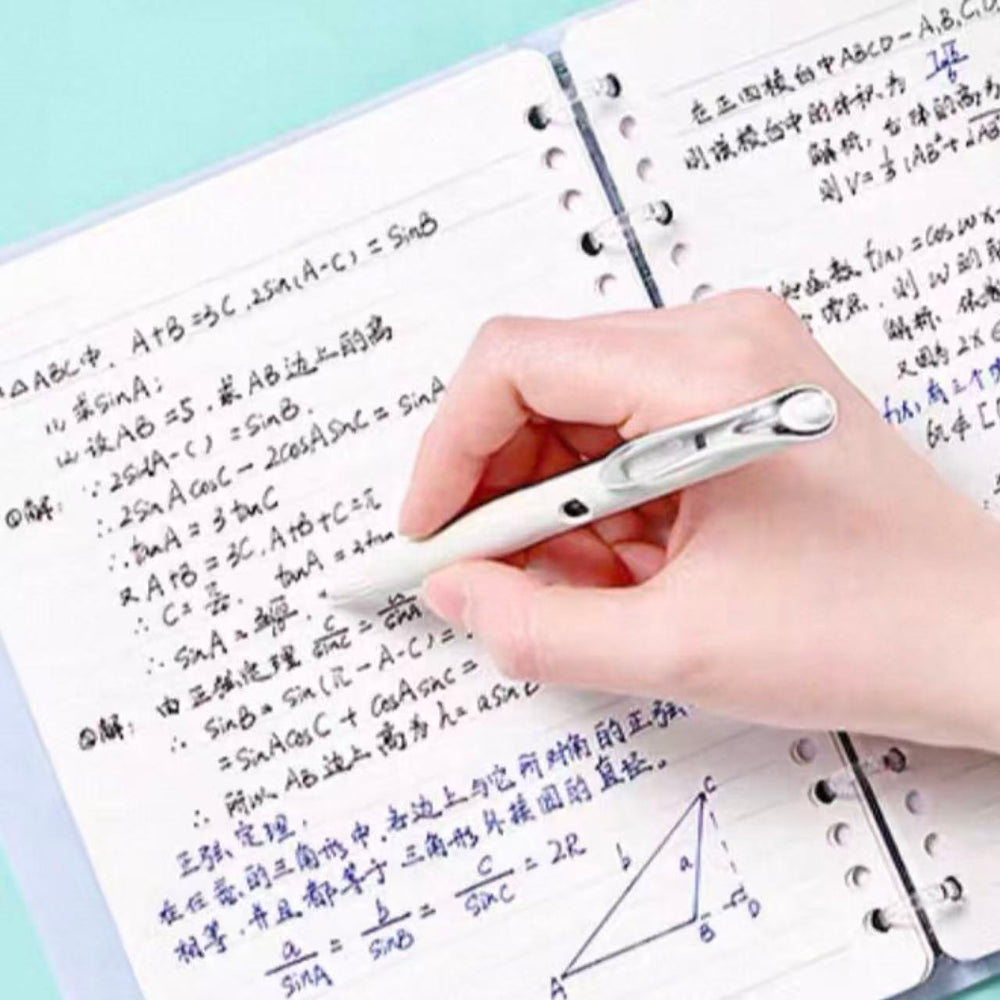 △ABC中,A+B=3C,2sin(A-C)=sinB
(1)求sinA;
(2)设AB=5,求AB边上的高
①解:∵2sin(A-C)=sinB.
∴2sinAcosC-2cosAsinC=sinA
∴tanA=3tanC
又A+B=3C,A+B+C=π
∴C=π/4, tanA=3tan
∴sinA=
由正弦定理 c/sinC=a/sinA
②解:∴sinB=sin(π-A-C)=
=sinAcosC+cosAsinC=
∴所以AB边上高为h=asin
正弦定理,
在任意的三角形中,各边上与它所对角的正弦
相等,并且都等于三角形外接圆的直径。
a/sinA=b/sinB=c/sinC=2R
C
b a
B D
A
在正四棱台中ABCD-A,B,C,D
则该棱台中的体积为
解析,台体的高为
则V=1/3(AB²+
函数f(x)=coswx-
零点,则w的取
解析,依
又因为2x
f(x)有三个